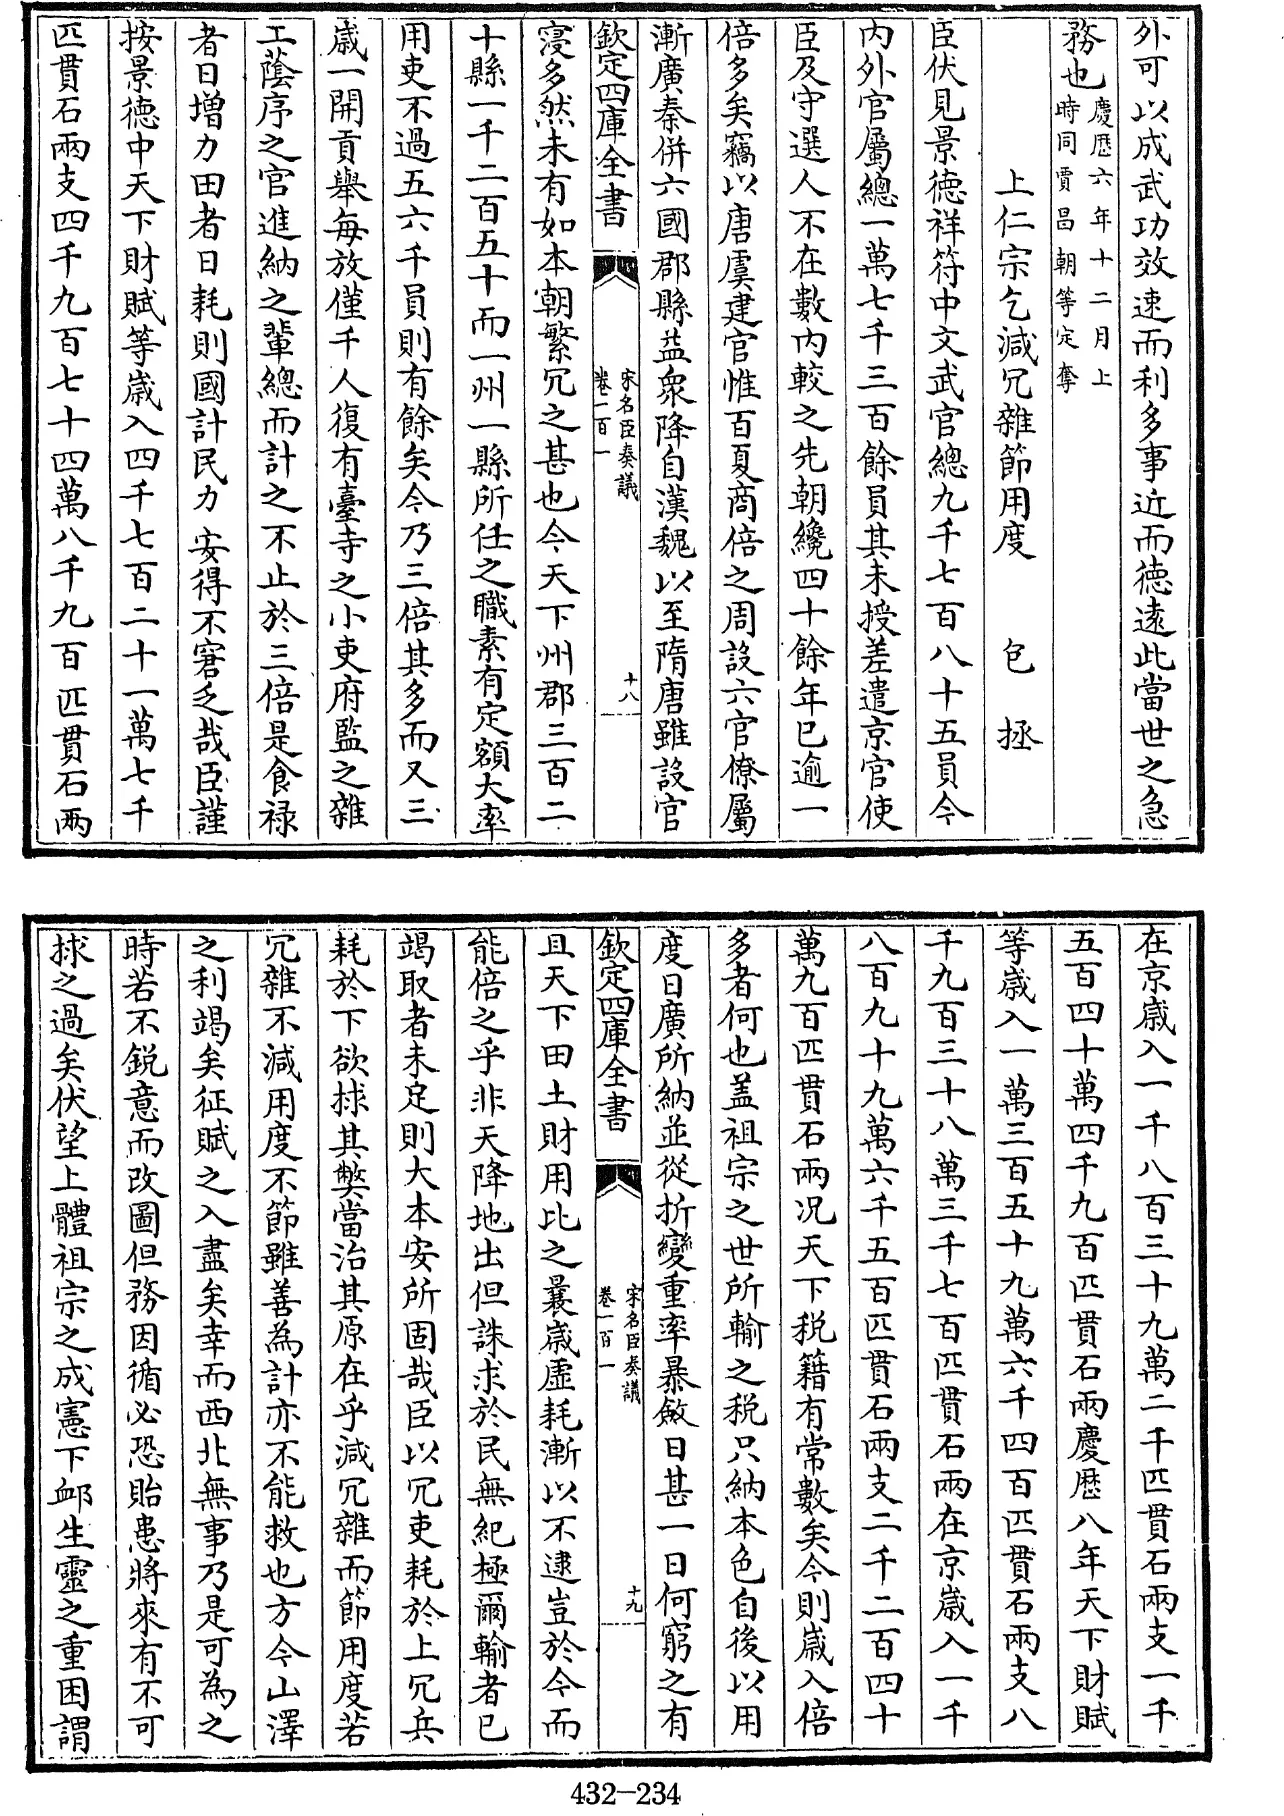 外可以成武功效速而利多事近而德遠此當世之急
務也慶歷六年十二月上
時同賈昌朝等定奪
上仁宗乞減冗雜節用度　包拯
臣伏見景德祥符中文武官總九千七百八十五員今
内外官屬總一萬七千三百餘員其未授差遣京官使
臣及守選人不在數内較之先朝纔四十餘年已逾一
倍多矣竊以唐虞建官惟百夏商倍之周設六官僚屬
漸廣秦併六國郡縣益衆降自漢魏以至隋唐雖設官
欽定四庫全書
宋名臣奏議
卷一百一
十八
寖多然未有如本朝繁冗之甚也今天下州郡三百二
十縣一千二百五十而一州一縣所任之職素有定額大率
用吏不過五六千員則有餘矣今乃三倍其多而又三
歳一開貢舉每放僅千人復有臺寺之小吏府監之雜
工蔭序之官進納之輩總而計之不止於三倍是食禄
者日增力田者日耗則國計民力安得不窘乏哉臣謹
按景德中天下財賦等歳入四千七百二十一萬七千
匹貫石兩支四千九百七十四萬八千九百匹貫石兩
在京歳入一千八百三十九萬二千匹貫石兩支一千
五百四十萬四千九百匹貫石兩慶歷八年天下財賦
等歳入一萬三百五十九萬六千四百匹貫石兩支八
千九百三十八萬三千七百匹貫石兩在京歳入一千
八百九十九萬六千五百匹貫石兩支二千二百四十
萬九百匹貫石兩况天下税籍有常數矣今則歳入倍
多者何也盖祖宗之世所輸之税只納本色自後以用
度日廣所納並從折變重率暴斂日甚一日何窮之有
欽定四庫全書
宋名臣奏議
卷一百一
十九
且天下田土財用比之曩歳虚耗漸以不逮豈於今而
能倍之乎非天降地出但誅求於民無紀極爾輸者已
竭取者未足則大本安所固哉臣以冗吏耗於上冗兵
耗於下欲捄其弊當治其原在乎減冗雜而節用度若
冗雜不減用度不節雖善為計亦不能救也方今山澤
之利竭矣征賦之入盡矣幸而西北無事乃是可為之
時若不鋭意而改圖但務因循必恐貽患將來有不可
捄之過矣伏望上體祖宗之成憲下䘏生靈之重困謂
432-234